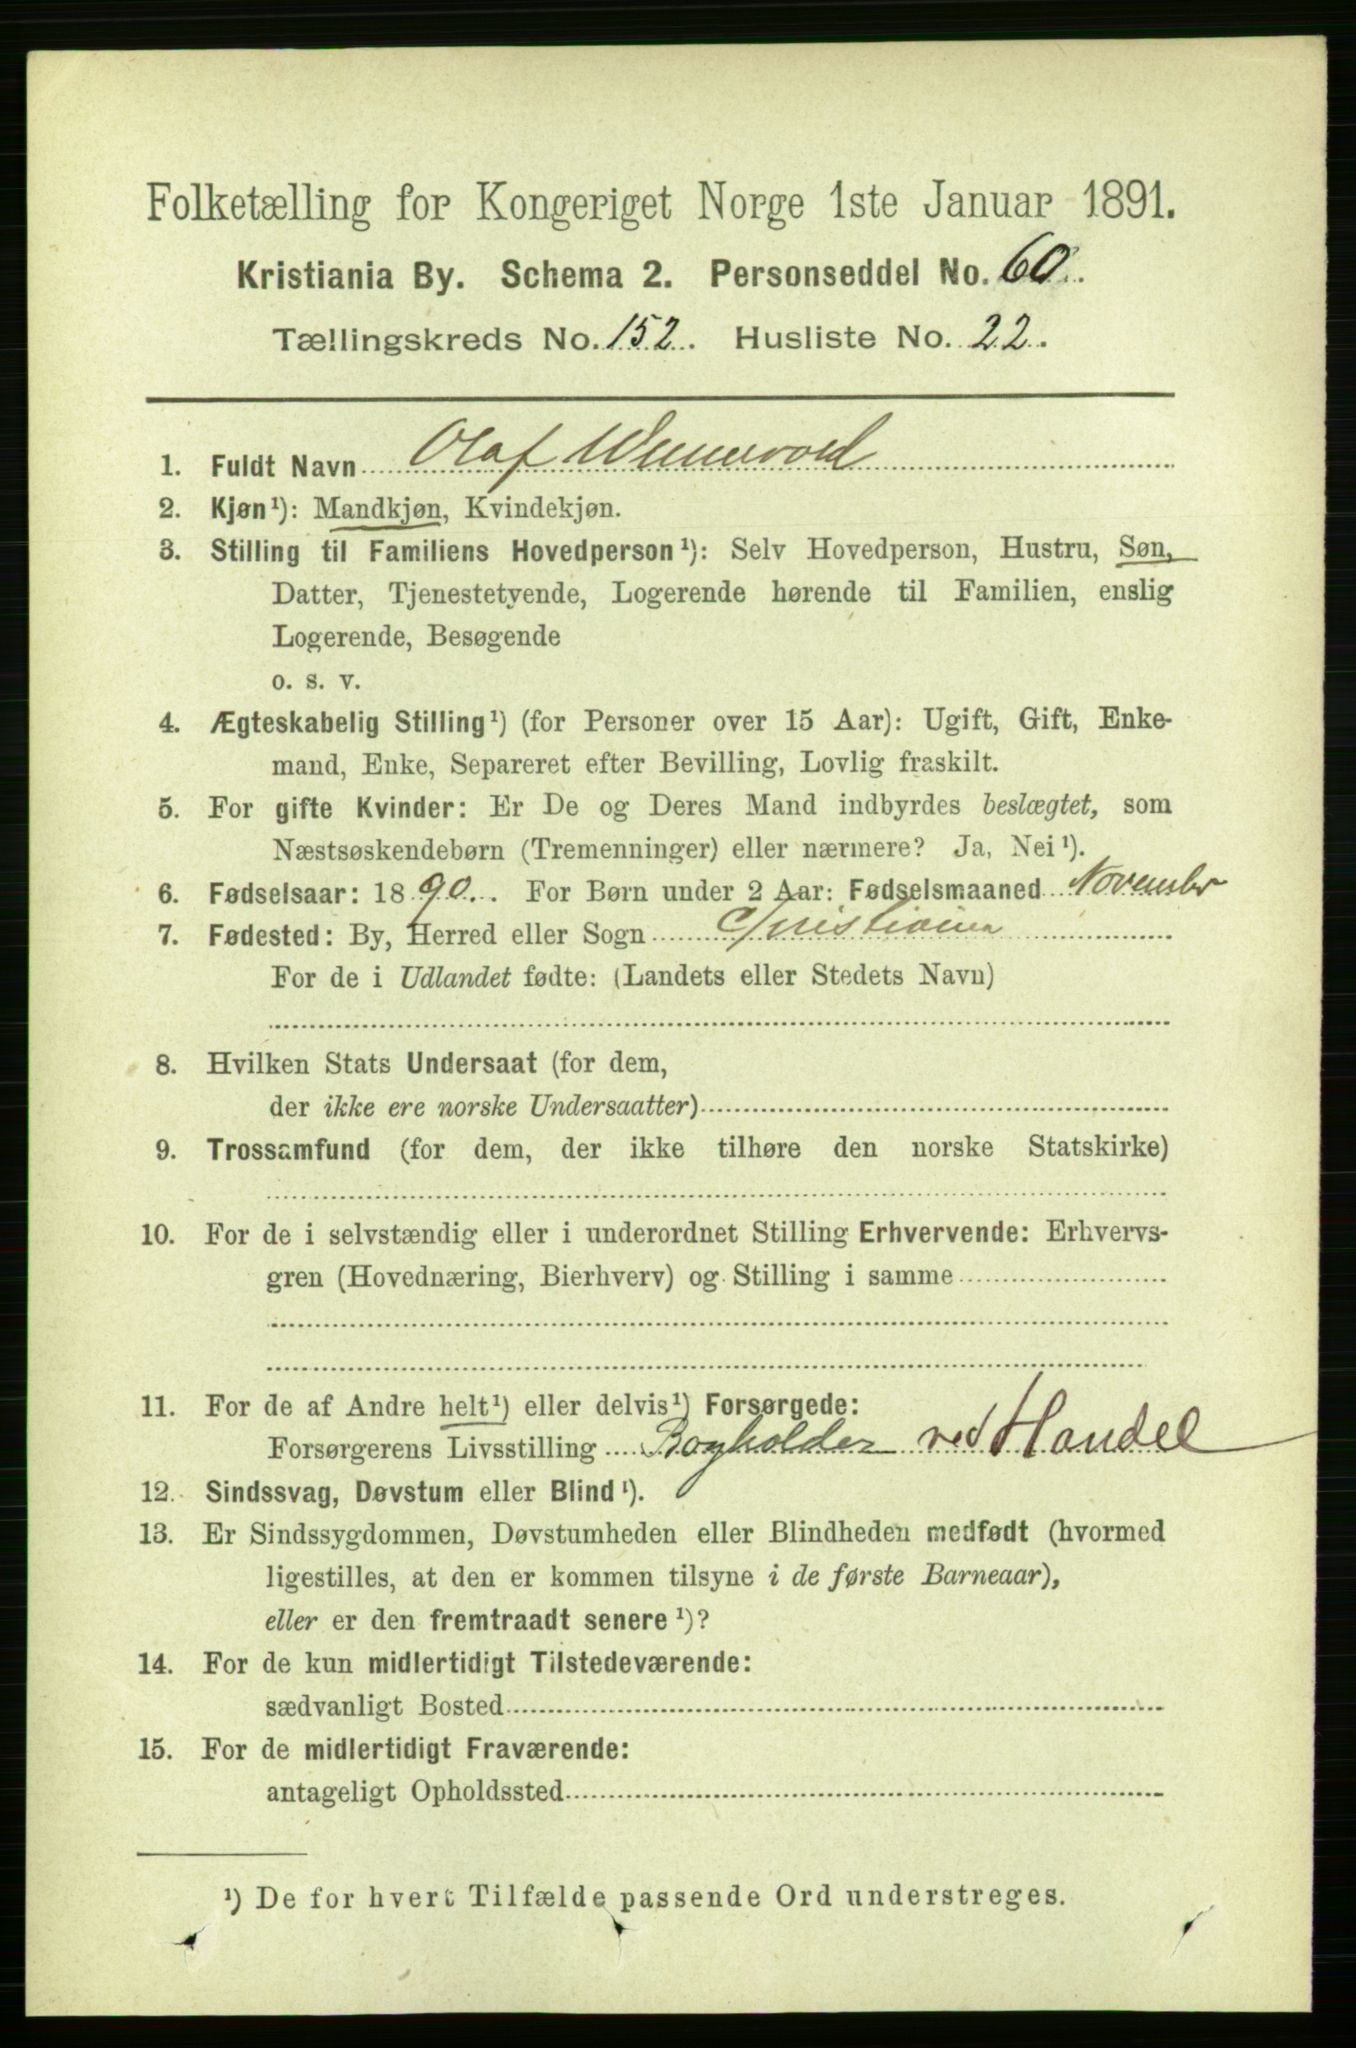 Folketælling for Kongeriget Norge 1ste Januar 1891.
Kristiania By. Schema 2. Personseddel No. 60.
Tællingskreds No. 152. Husliste No. 22.
1. Fuldt Navn Olaf
2. Kjøn¹): Mandkjøn, Kvindekjøn.
3. Stilling til Familiens Hovedperson¹): Selv Hovedperson, Hustru, Søn,
Datter, Tjenestetyende, Logerende hørende til Familien, enslig
Logerende, Besøgende
o. s. v.
4. Ægteskabelig Stilling¹) (for Personer over 15 Aar): Ugift, Gift, Enke-
mand, Enke, Separeret efter Bevilling, Lovlig fraskilt.
5. For gifte Kvinder: Er De og Deres Mand indbyrdes beslægtet, som
Næstsøskendebørn (Tremenninger) eller nærmere? Ja, Nei¹).
6. Fødselsaar: 1890. For Børn under 2 Aar: Fødselsmaaned November
7. Fødested: By, Herred eller Sogn Christiania
For de i Udlandet fødte: (Landets eller Stedets Navn)
8. Hvilken Stats Undersaat (for dem,
der ikke ere norske Undersaatter)
9. Trossamfund (for dem, der ikke tilhøre den norske Statskirke)
10. For de i selvstændig eller i underordnet Stilling Erhvervende: Erhvervs-
gren (Hovednæring, Bierhverv) og Stilling i samme
11. For de af Andre helt¹) eller delvis¹) Forsørgede:
Forsørgerens Livsstilling Bogholder ved Handel
12. Sindssvag, Døvstum eller Blind¹).
13. Er Sindssygdommen, Døvstumheden eller Blindheden medfødt (hvormed
ligestilles, at den er kommen tilsyne i de første Barneaar),
eller er den fremtraadt senere¹)?
14. For de kun midlertidigt Tilstedeværende:
sædvanligt Bosted
15. For de midlertidigt Fraværende:
antageligt Opholdssted
¹) De for hvert Tilfælde passende Ord understreges.